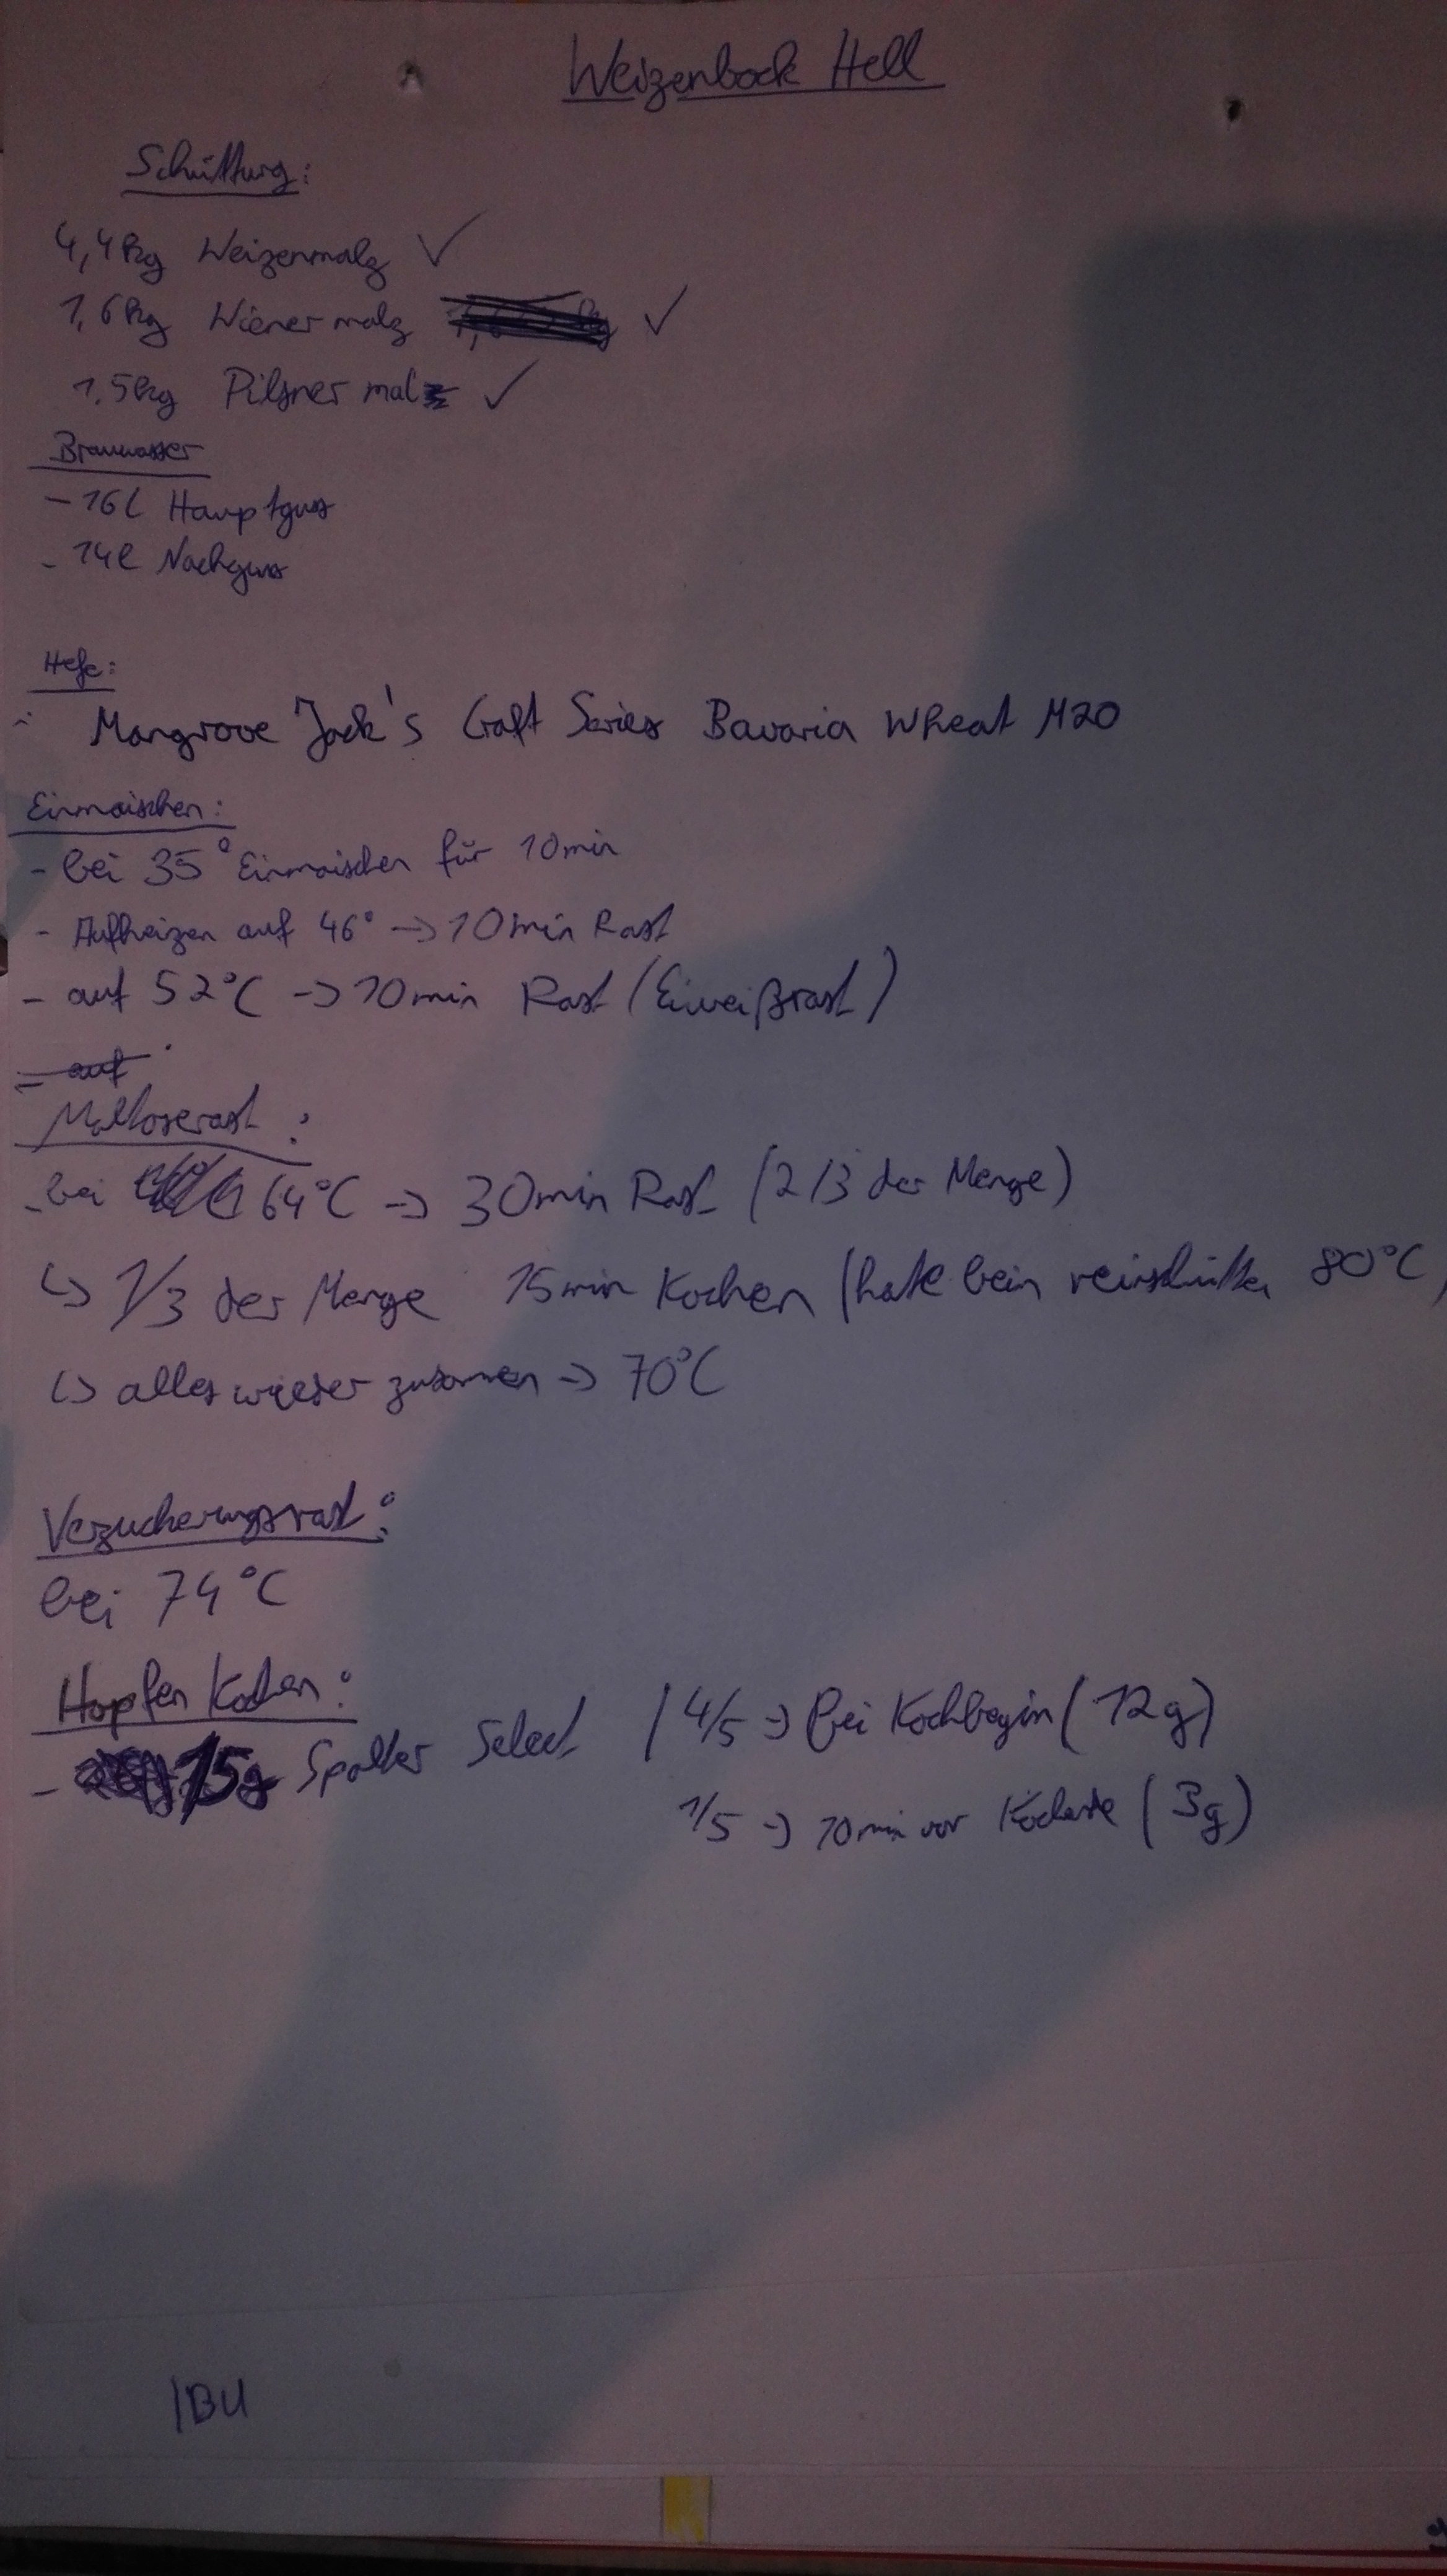 Weizenbock Hell
Schüttung:
4,4kg Weizenmalz ✓
1,6kg Wiener malz ✓
1,5kg Pilsner malz ✓
Brauwasser
- 16l Hauptguss
- 14l Nachguss
Hefe:
- Mangrove Jack's Craft Series Bavaria Wheat M20
Einmaischen:
- bei 35° Einmaischen für 10min
- Aufheizen auf 46° -> 10min Rast
- auf 52°C -> 10min Rast (Eiweißrast)
- auf
Maltoserast:
- bei 64°C -> 30min Rast (2/3 der Menge)
↳ 1/3 der Menge 15min Kochen (hatte beim reinschütten 80°C)
↳ alles wieder zusammen -> 70°C
Verzuckerungsrast:
bei 74°C
Hopfen Kochen:
- 15g Spalter Select / 4/5 -> Bei Kochbegin (12g)
1/5 -> 10min vor Kochende (3g)
IBU